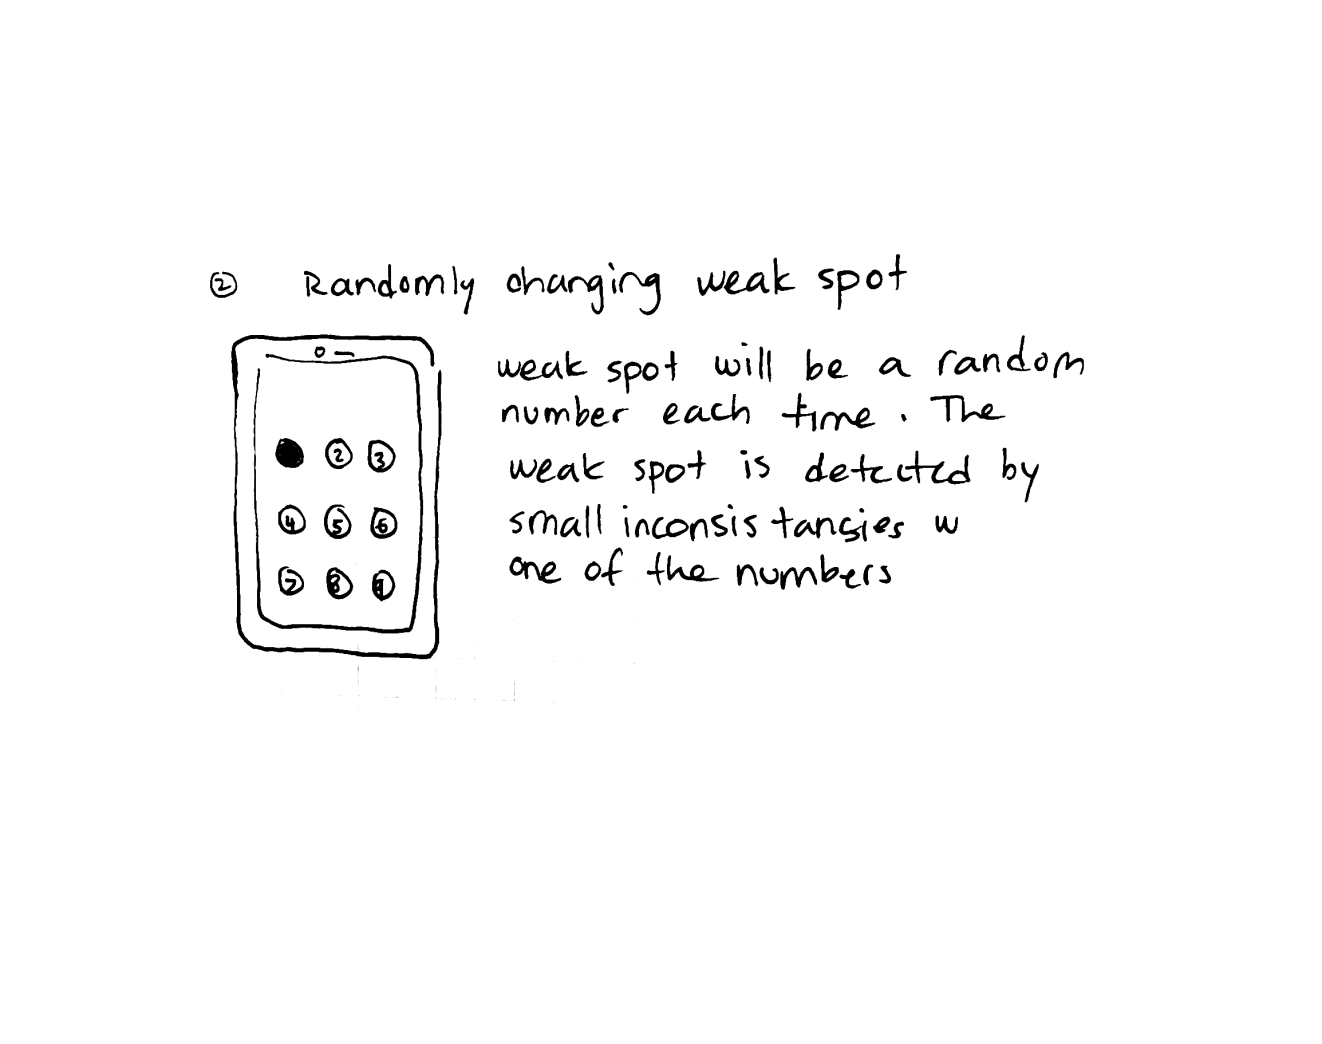 ② Randomly changing weak spot
weak spot will be a random
number each time. The
weak spot is detected by
small inconsistansies w
one of the numbers
② ③
④ ⑤ ⑥
⑦ ⑧ ⑨